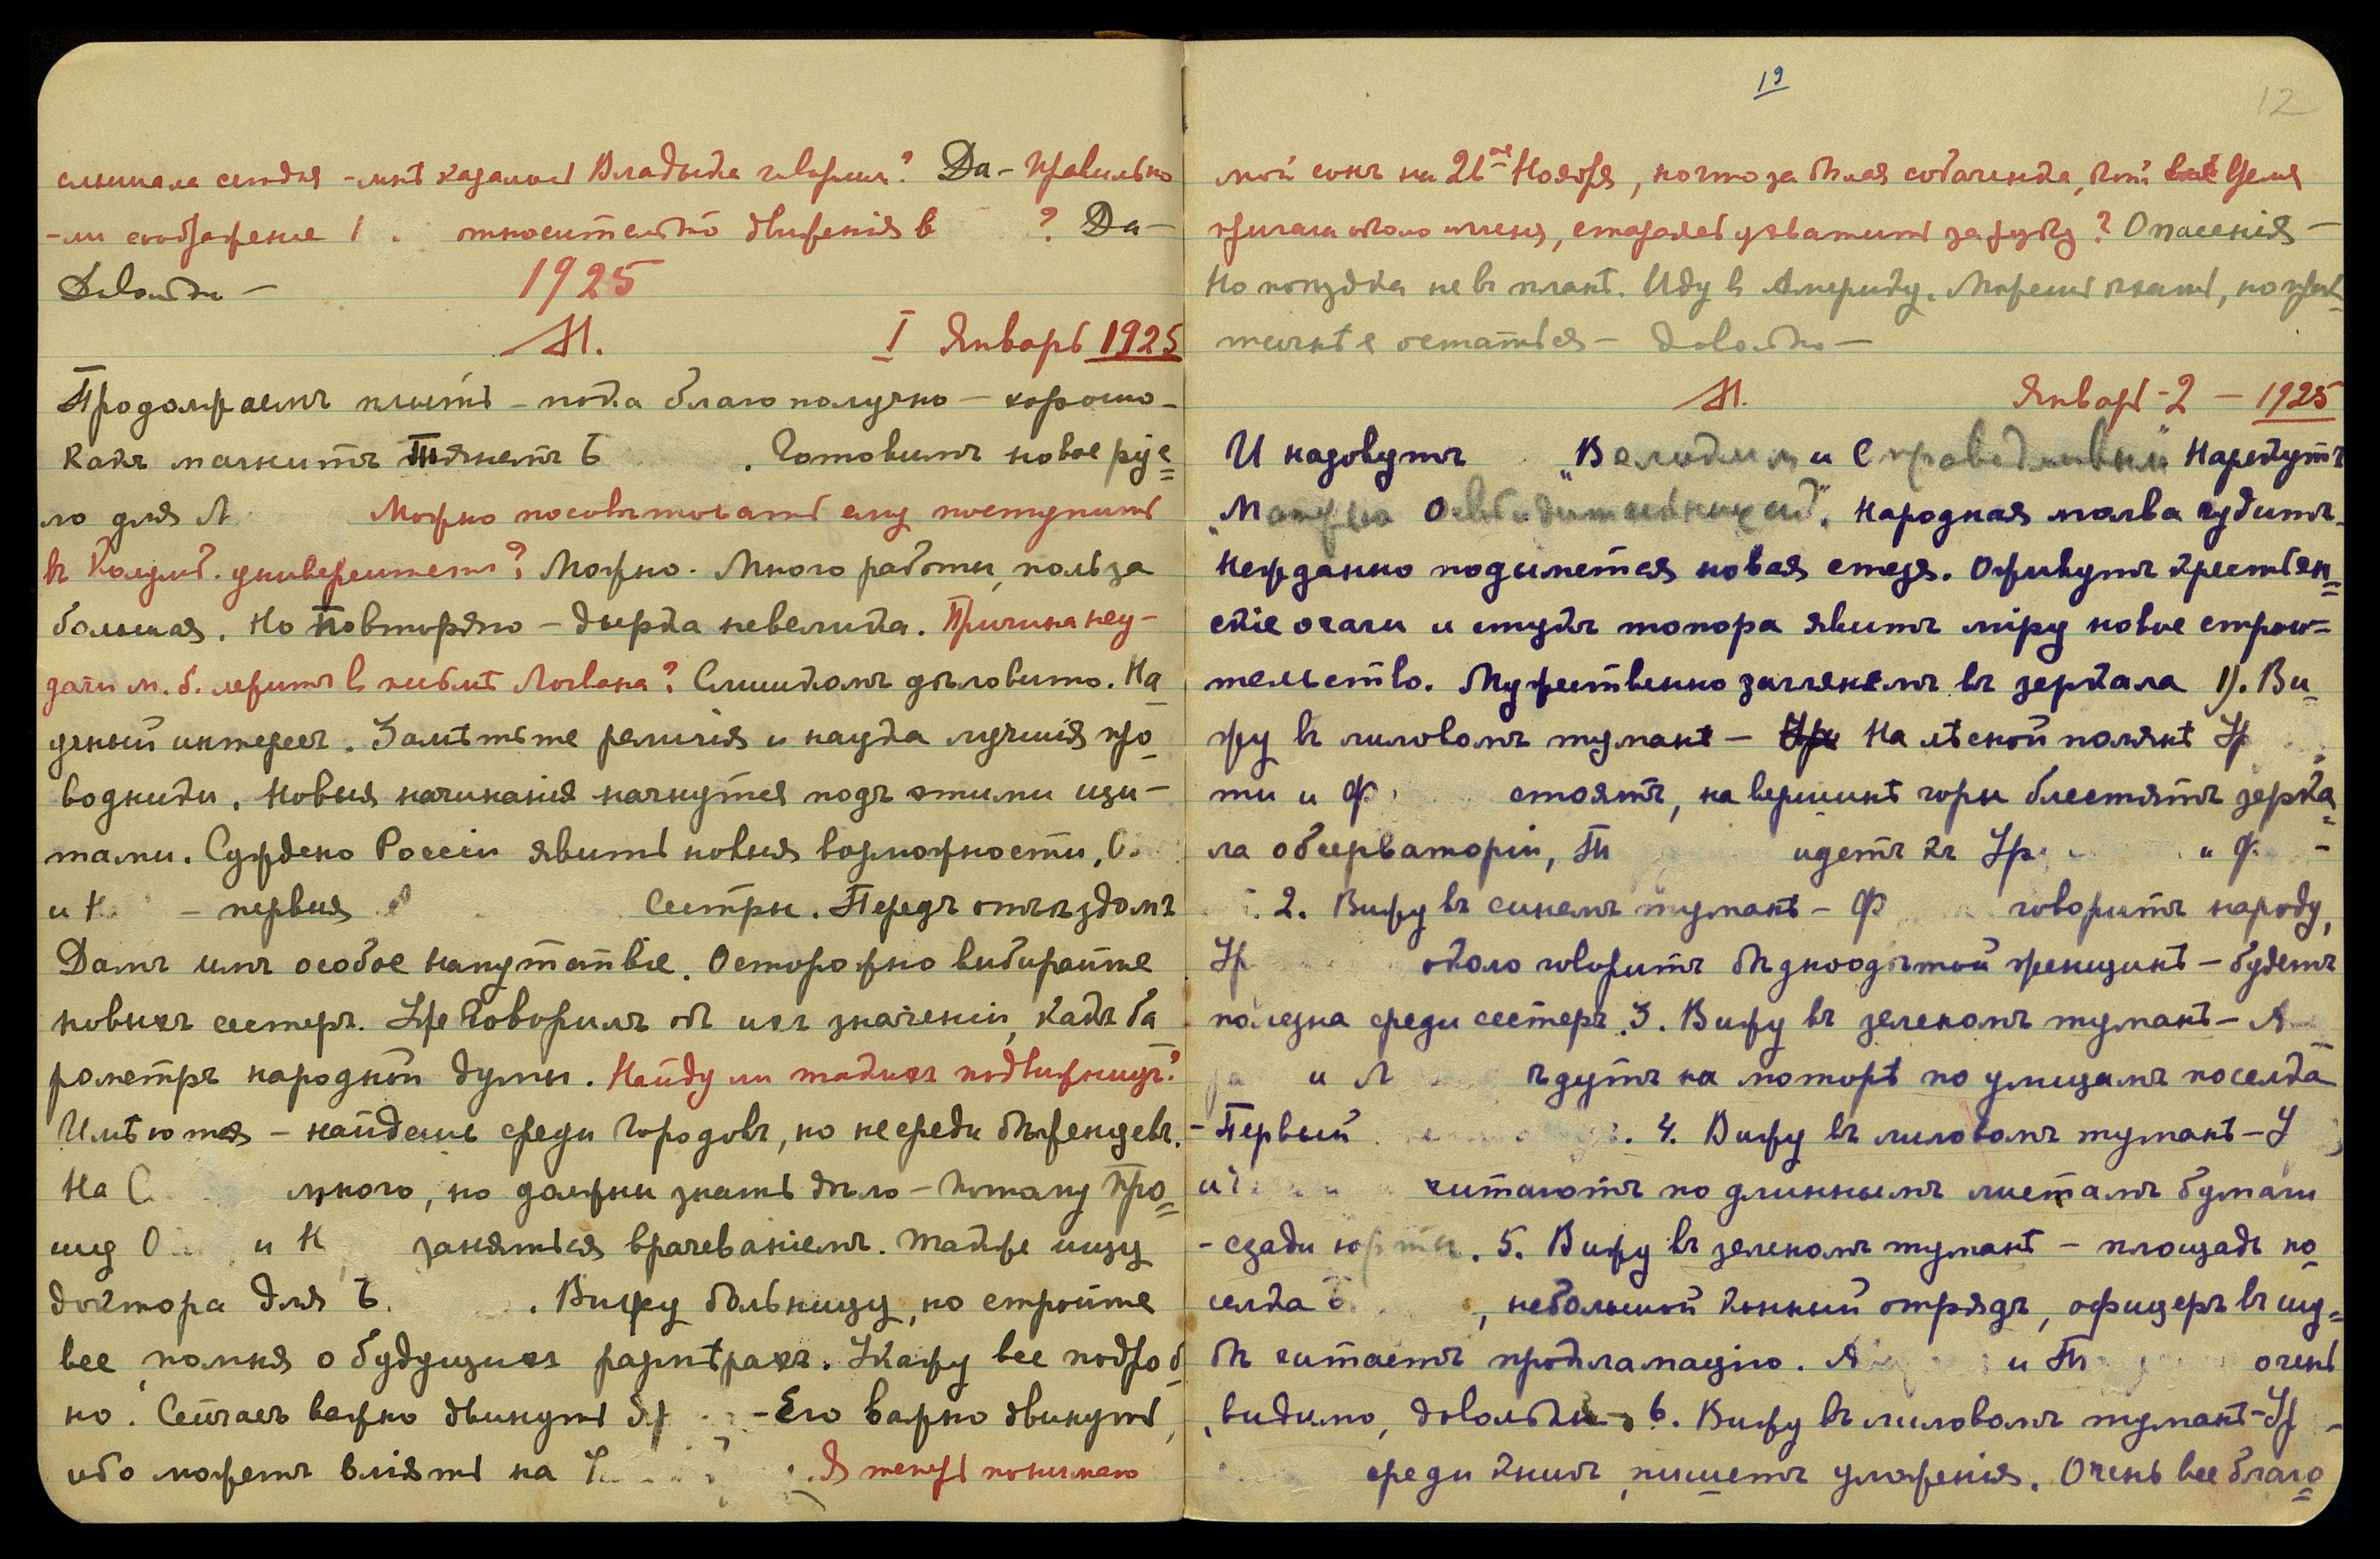 слышала сегодня – мнѣ казалось Владыка говорилъ? Да – Правильно
-ли соображение относительно движенія в ? Да –
Довольно –
1925
М.
I Январь 1925
Продолжаемъ плыть – пока благополучно – хорошо –
Какъ магнитъ Тянетъ Б . Готовимъ новое рус=
ло для Л Можно посовѣтовать ему поступить
въ Колумб. университетъ? Можно. Много работы, польза
большая. Но Повторяю – дырка невелика. Причина неу-
дачи м. б. лежитъ в книгѣ Логвана? Слишкомъ дѣловито. На
учный интересъ. Замѣтьте религія и наука лучшія про
водники. Новыя начинанія начнутся подъ этими щи-
тами. Суждено Россіи явить новыя возможности. О.
и Н – первыя Сестры. Передъ отъѣздомъ
Дамъ имъ особое напутствіе. Осторожно выбирайте
новыхъ сестеръ. Уже Говорилъ объ ихъ значеніи, какъ ба
рометръ народной думы. Найду ли такихъ подвижницъ?
Имѣются – найдешь среди Городовъ, но не среди бѣженцевъ.
На С. много, но должны знать дѣло – потому Про=
шу О и Н заняться врачеваніемъ. Также ищу
доктора для Б. . Вижу больницу, но стройте
все, помня о будущихъ размѣрахъ. Укажу все подроб
но. Сейчасъ важно двинуть Яр – Его важно двинуть,
ибо можетъ вліять на . Я теперь понимаю
19
12
мой сонъ на 21ое Ноября, но что за бѣлая собаченка, кот. все время
прыгала около меня, стараясь ухватить за руку? Опасенія –
Но поѣздка не въ планѣ. Иду в Америку. Можешь ѣхать, но прак
тичнѣе остаться – Довольно –
М.
Январь – 2 – 1925
И назовутъ „Великимъ и Справедливымъ" Нарекутъ
„Матерью Освободительницей". Народная молва гудитъ.
Нежданно подымется новая стезя. Оживутъ крестьян=
скіе очаги и стукъ топора явитъ міру новое строи=
тельство. Мужественно заглянемъ въ зеркала 1). Ви
жу въ лиловомъ туманѣ – На лѣсной полянѣ Ур
ти и Ф стоятъ, на вершинѣ горы блестятъ зерка
ла обсерваторіи, Т идетъ къ Ур и Ф –
. 2. Вижу въ синемъ туманѣ – Ф говоритъ народу,
Ур около говоритъ бѣдноодѣтой женщинѣ – будетъ
полезна среди сестеръ. 3. Вижу въ зеленомъ туманѣ – А
и Л ѣдутъ на моторѣ по улицамъ поселка
– Первый . 4. Вижу въ лиловомъ туманѣ – У
и читаютъ по длиннымъ листамъ бумаги
– сзади юрты. 5. Вижу въ зеленомъ туманѣ – площадь по
селка , небольшой конный отрядъ, офицеръ въ шу=
бѣ читаетъ прокламацію. Я и Т очень
видимо, довольны. 6. Вижу въ лиловомъ туманѣ – Ур
среди книгъ пишетъ уложенія. Очень все благо